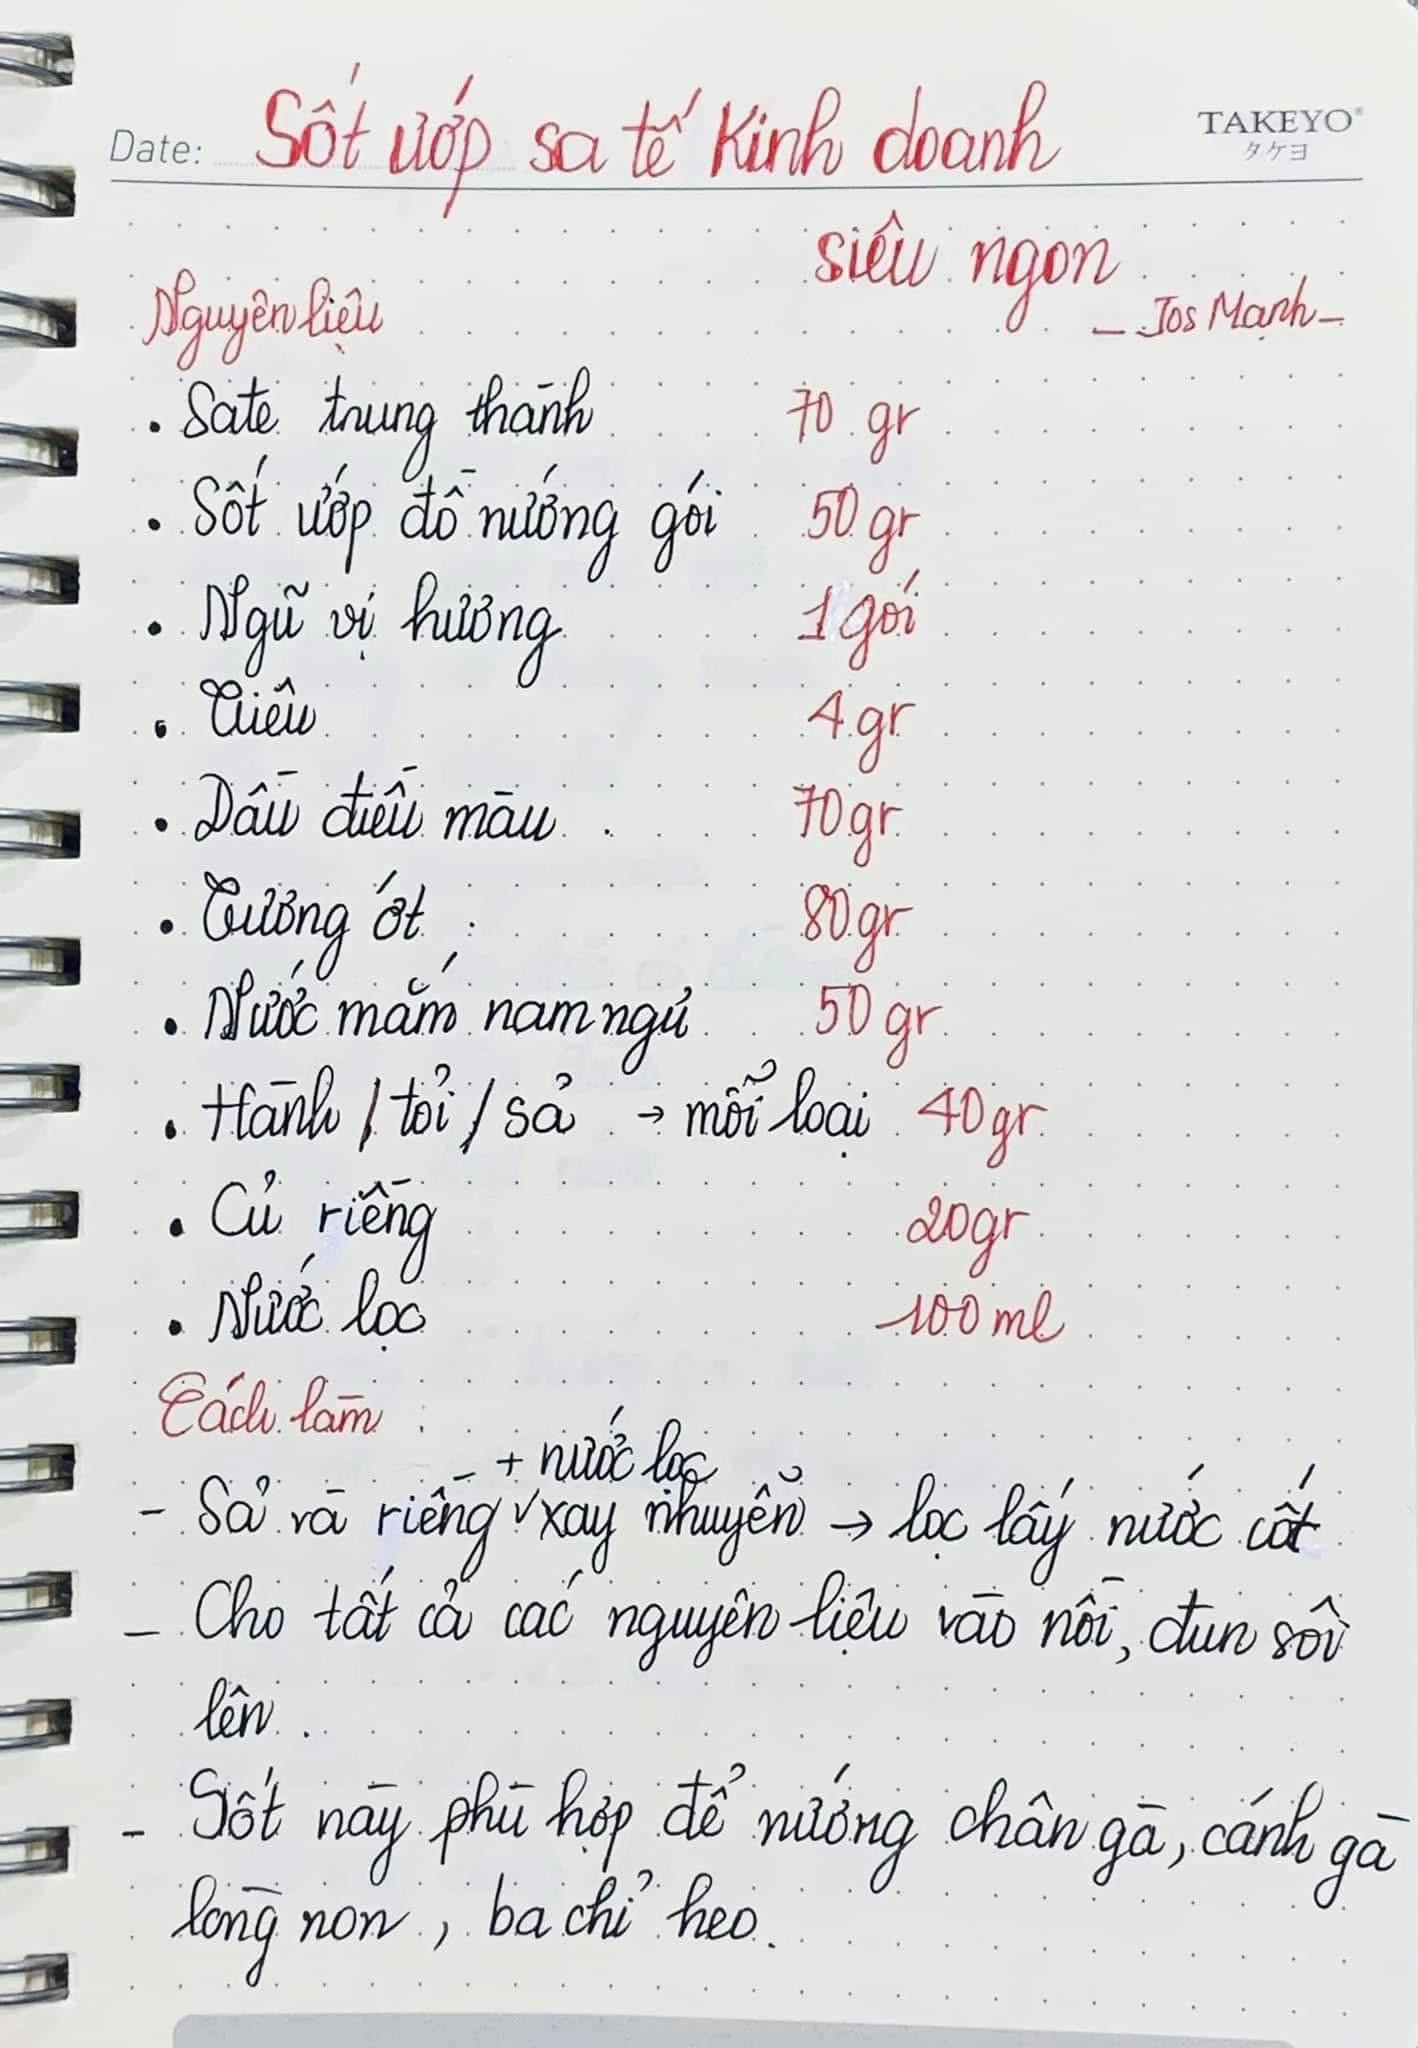 Date: Sốt ướp sa tế Kinh doanh
TAKEYO®
タケヨ
siêu ngon
– Jos Mạnh –
Nguyên liệu
• Sate trung thành 70 gr
• Sốt ướp đồ nướng gói 50 gr
• Ngũ vị hương 1 gói
• Tiêu 4 gr
• Dầu điều màu 70 gr
• Tương ớt 80 gr
• Nước mắm nam ngư 50 gr
• Hành / tỏi / sả → mỗi loại 40 gr
• Củ riềng 20 gr
• Nước lọc 100 ml
Cách làm :
+ nước lọc
- Sả và riềng ✓ xay nhuyễn → lọc lấy nước cốt
- Cho tất cả các nguyên liệu vào nồi, đun sôi
lên.
- Sốt này phù hợp để nướng chân gà, cánh gà
lòng non, ba chỉ heo.